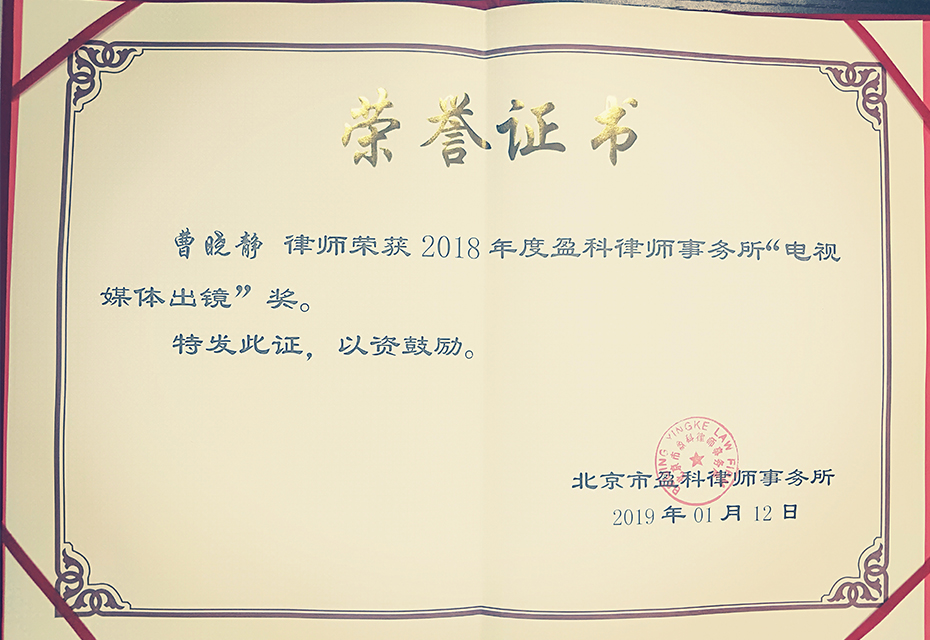 荣誉证书
曹晓静 律师荣获 2018 年度盈科律师事务所“电视
媒体出镜”奖。
特发此证，以资鼓励。
BEIJING YINGKE LAW FIRM
北京市盈科律师事务所
北京市盈科律师事务所
2019 年 01 月 12 日